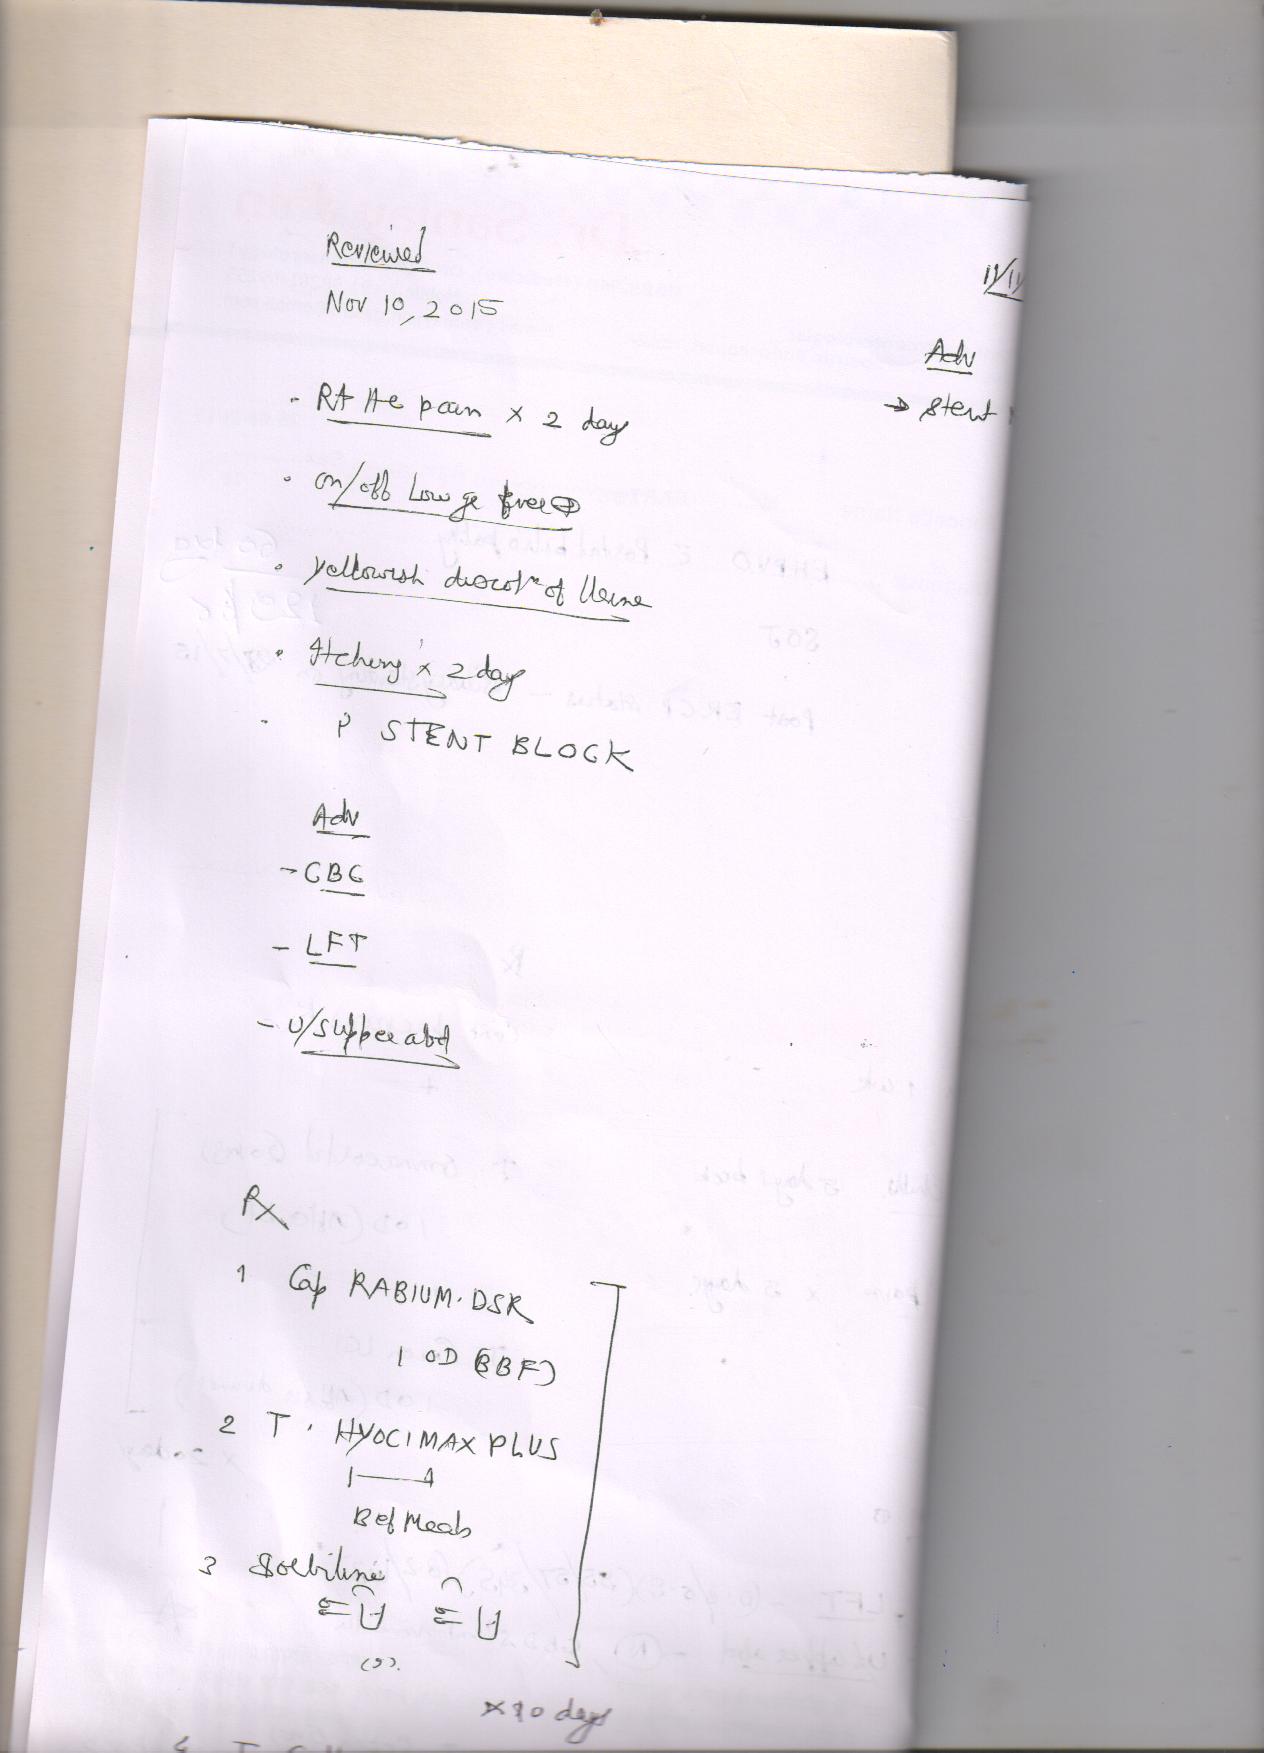 Reviewed
Nov 10, 2015
11/11
Adv
→ Stent
- Rt Hc pain x 2 day
on/off Low ge fever
Yellowish discolⁿ of Urine
Itching x 2 day
? STENT BLOCK
Adv
- CBC
- LFT
- U/S upper abd
Rx
1 Cap RABIUM-DSR
1 OD (BBF)
2 T. HYOCIMAX PLUS
1—1
Bef Meals
3 Sorbiline
x 10 days
4 T.